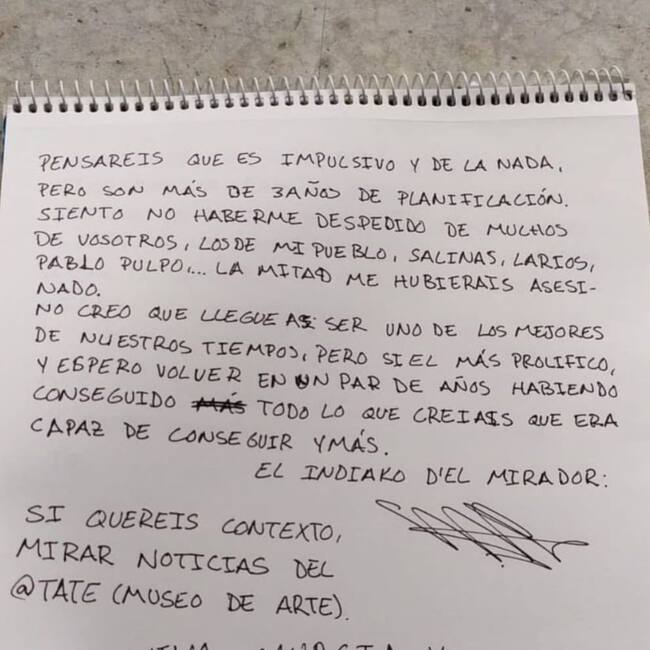 PENSAREIS QUE ES IMPULSIVO Y DE LA NADA,
PERO SON MÁS DE 3 AÑOS DE PLANIFICACIÓN.
SIENTO NO HABERME DESPEDIDO DE MUCHOS
DE VOSOTROS, LOS DE MI PUEBLO, SALINAS, LARIOS,
PABLO PULPO,... LA MITAD ME HUBIERAIS ASESI-
NADO.
NO CREO QUE LLEGUE A SER UNO DE LOS MEJORES
DE NUESTROS TIEMPOS, PERO SI EL MÁS PROLIFICO,
Y ESPERO VOLVER EN UN PAR DE AÑOS HABIENDO
CONSEGUIDO MÁS TODO LO QUE CREIAIS QUE ERA
CAPAZ DE CONSEGUIR Y MÁS.
EL INDIAKO D'EL MIRADOR:
SI QUEREIS CONTEXTO,
MIRAR NOTICIAS DEL
@TATE (MUSEO DE ARTE).